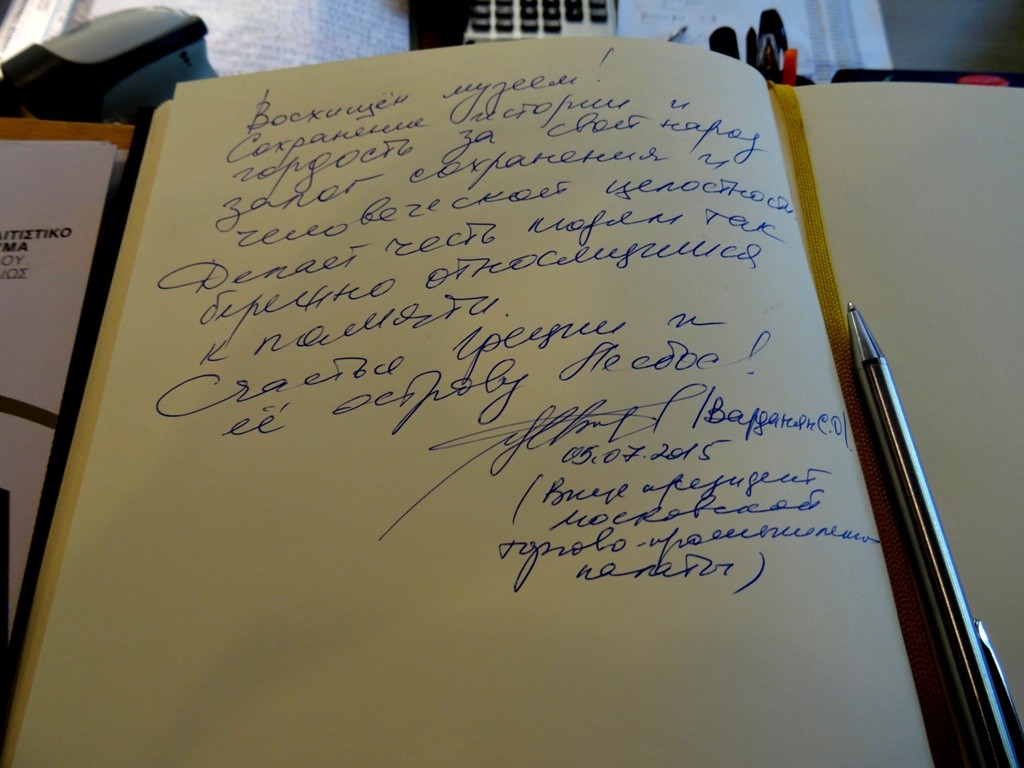 Восхищён музеем!
Сохранение истории и
гордость за свой народ
залог сохранения и
человеческой целостности
Делает честь людям так
бережно относящимися
к памяти.
Счастья Греции и
её острову Лесбос!
/Варданян С.О/
05.07.2015
(Вице президент
Московской
торгово-промышленной
палаты)
ΛΙΤΙΣΤΙΚΟ
ΥΜΑ
ΟΥ
ΙΩΣ